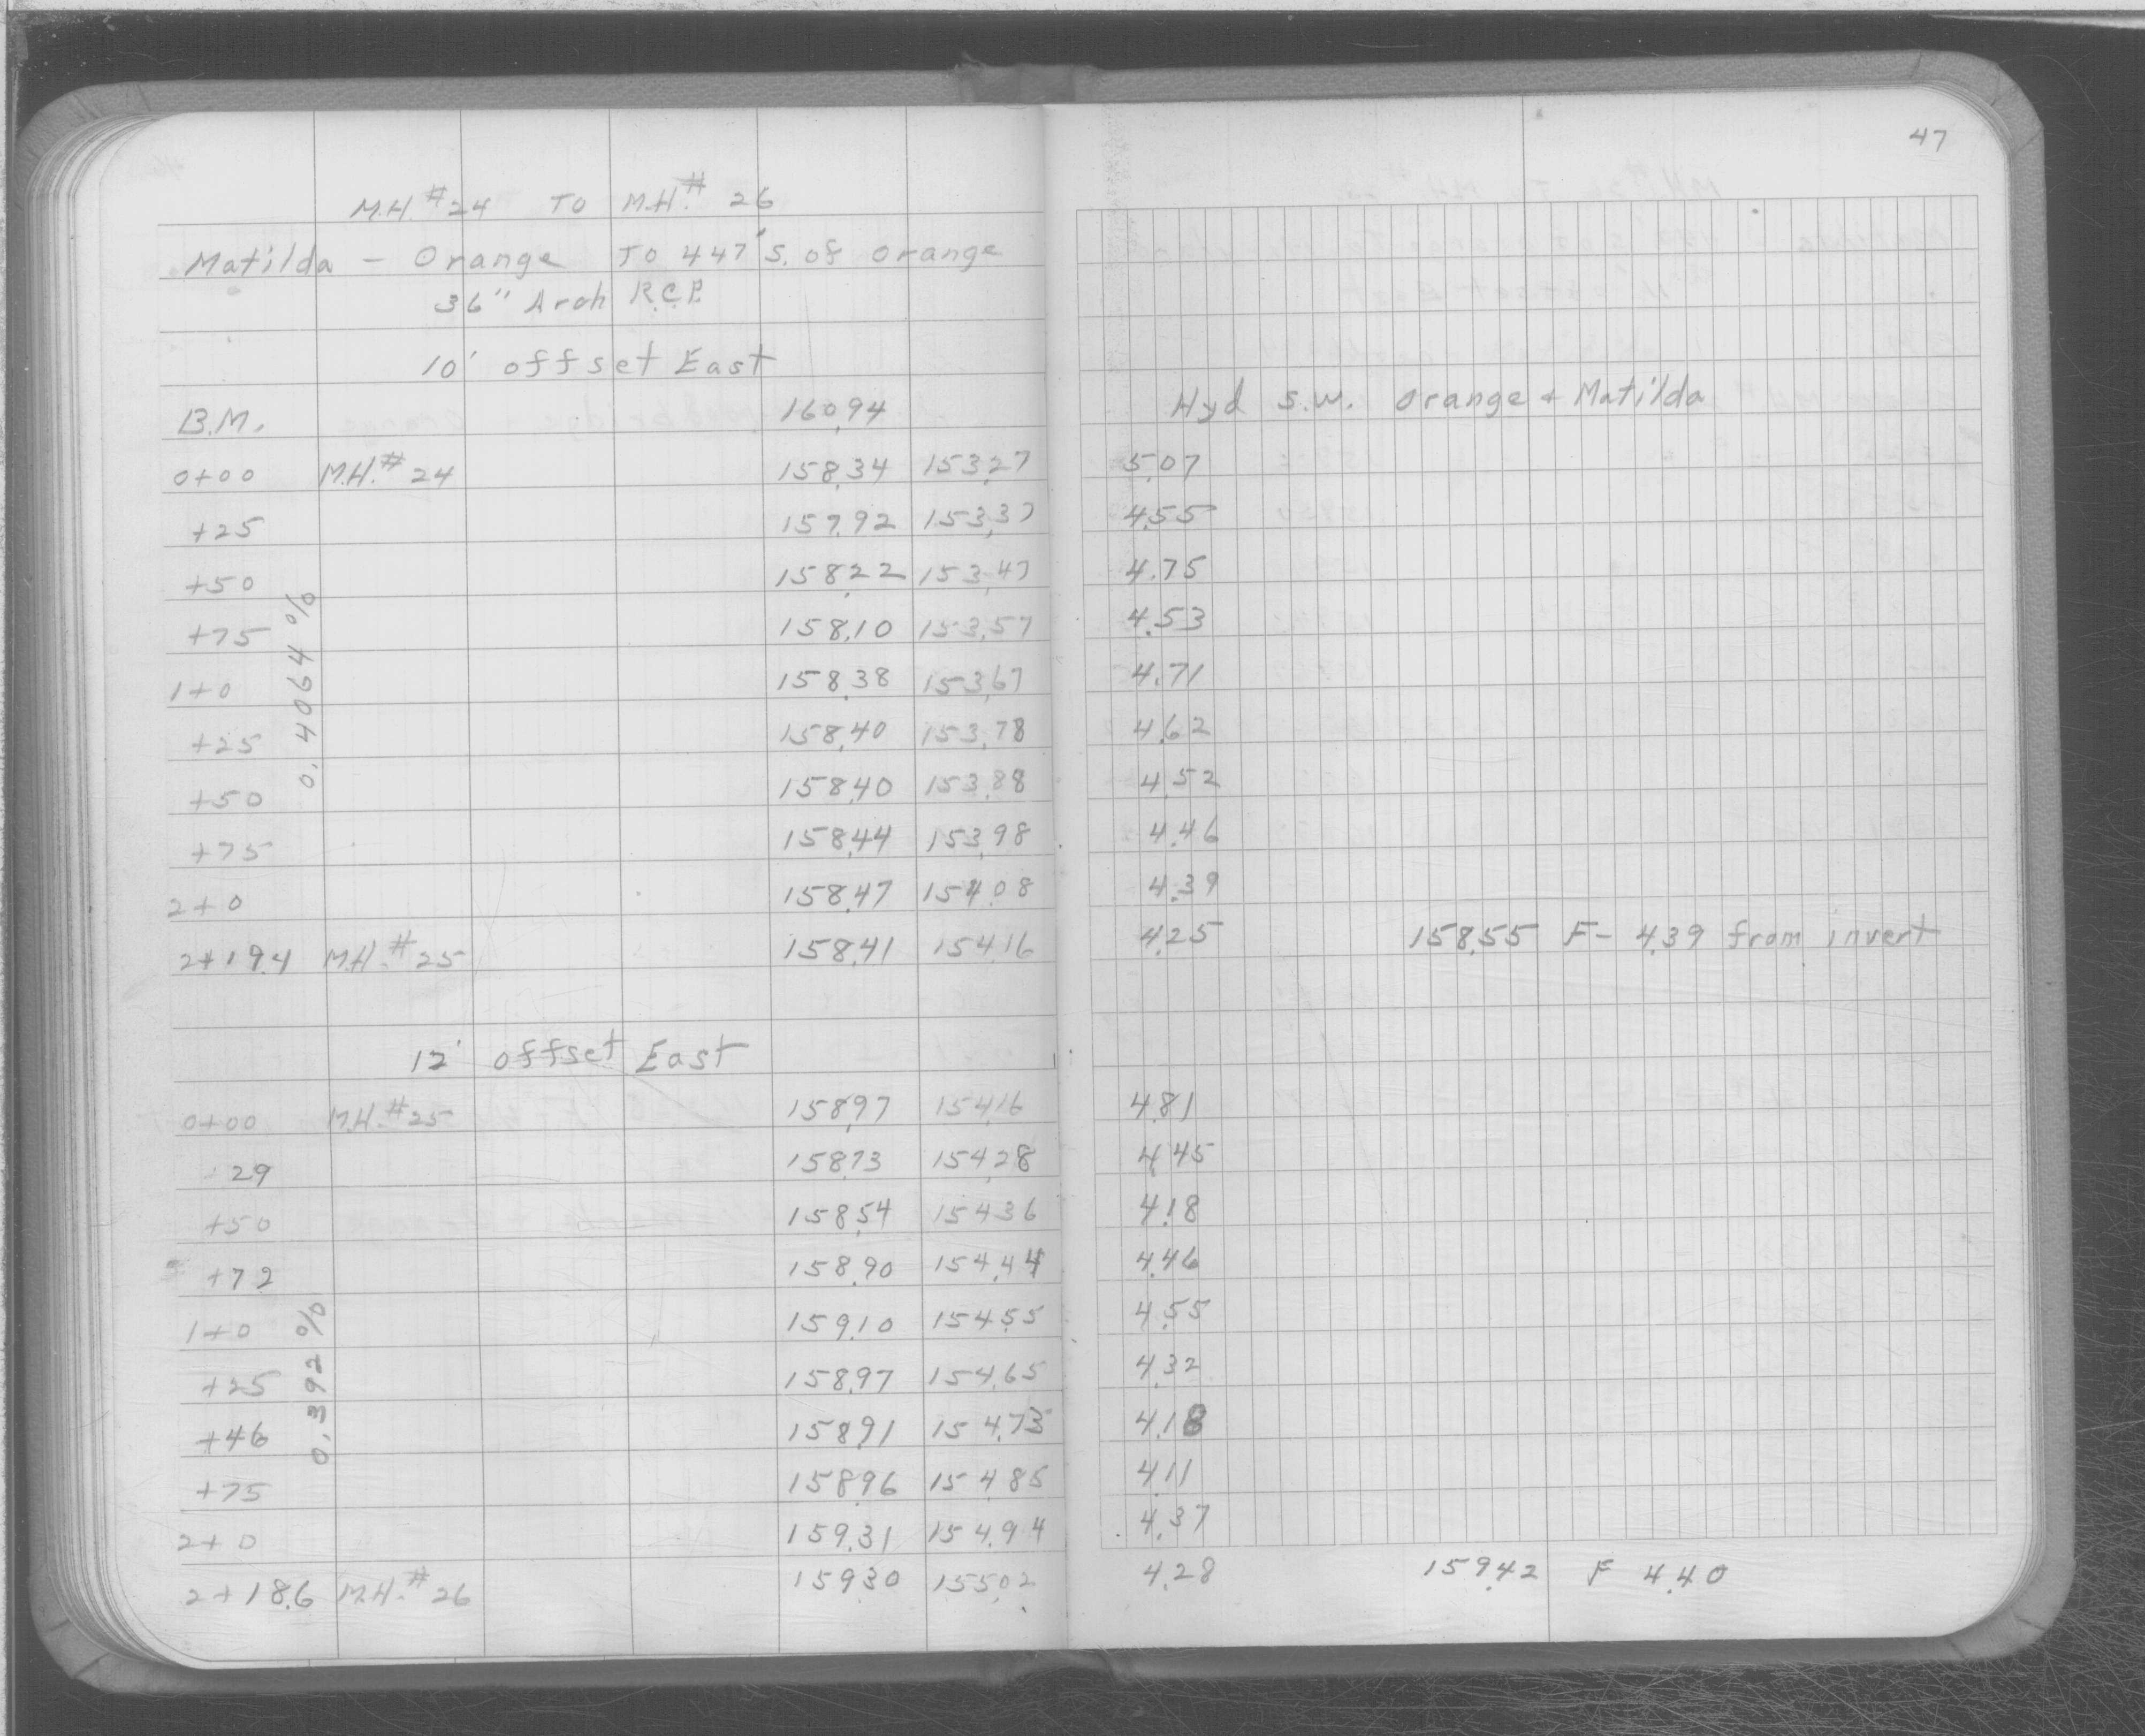 47
M.H.#24 TO M.H.# 26
Matilda - Orange TO 447' S. of Orange
36" Arch R.C.P.
10' offset East
B.M. 160.94 Hyd S.W. Orange + Matilda
0+00 M.H.# 24 158.34 153.27 5.07
+25 157.92 153.37 4.55
+50 158.22 153.47 4.75
+75 158.10 153.57 4.53
1+0 158.38 153.67 4.71
+25 158.40 153.78 4.62
+50 158.40 153.88 4.52
+75 158.44 153.98 4.46
2+0 158.47 154.08 4.39
2+19.4 M.H.# 25 158.41 154.16 4.25 158.55 F- 4.39 from invert
0.4064 %
12' offset East
0+00 M.H.#25 158.97 154.16 4.81
+29 158.73 154.28 4.45
+50 158.54 154.36 4.18
+72 158.90 154.44 4.46
1+0 159.10 154.55 4.55
+25 158.97 154.65 4.32
+46 158.91 154.73 4.18
+75 158.96 154.85 4.11
2+0 159.31 154.94 4.37
2+18.6 M.H.# 26 159.30 155.02 4.28 159.42 F 4.40
0.392 %